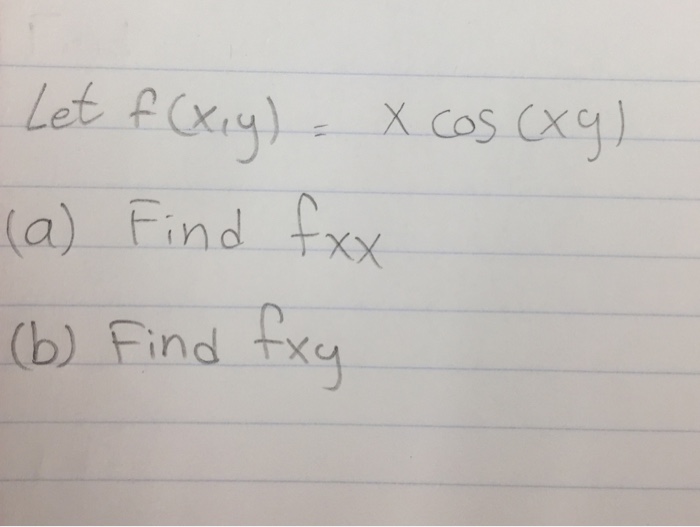 Let f(x,y) = x cos (xy)
(a) Find fxx
(b) Find fxy